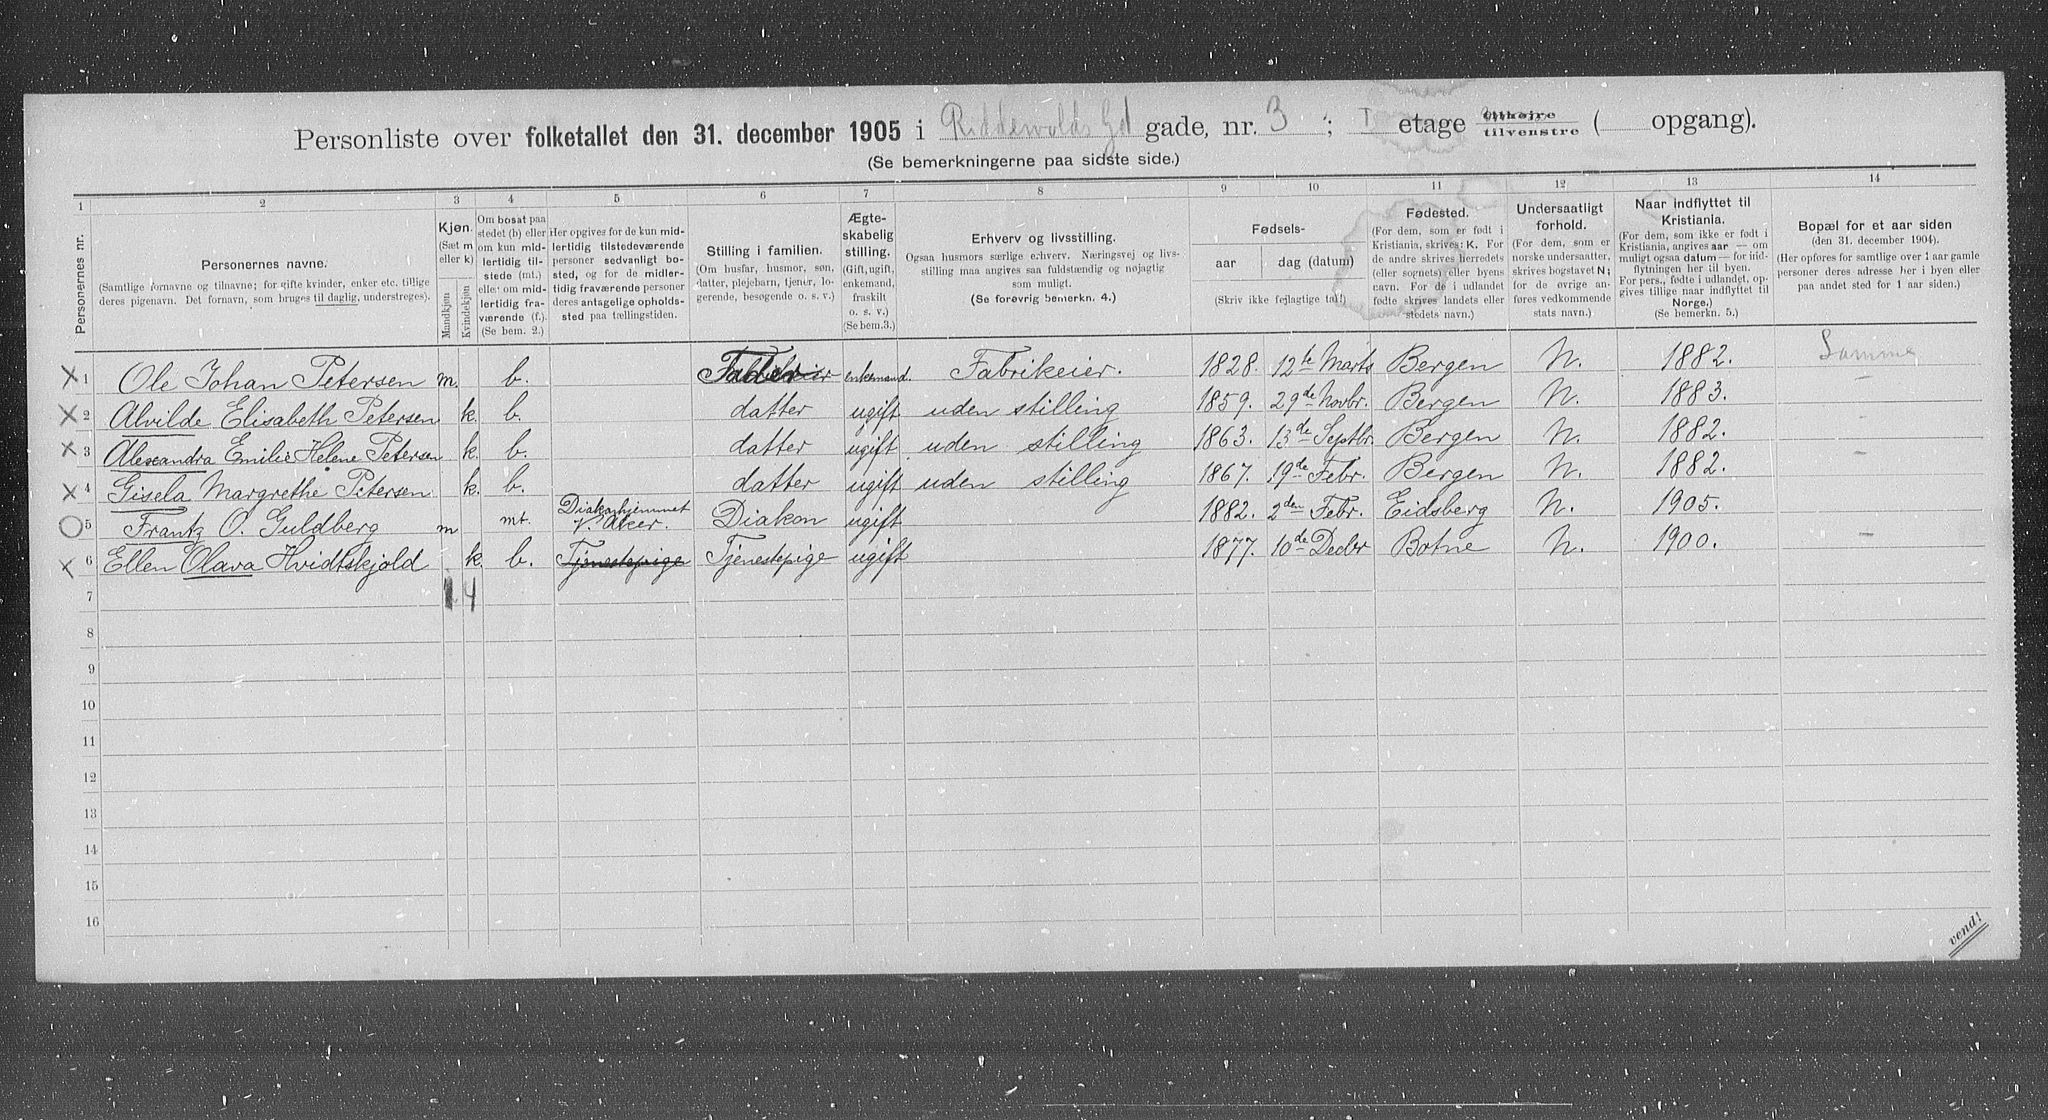 Personliste over folketallet den 31. december 1905 i Riddervolds Gd gade, nr. 3 ; I etage tilhøjre tilvenstre ( opgang).
(Se bemerkningerne paa sidste side.)
1 2 3 4 5 6 7 8 9 10 11 12 13 14
Personernes nr.
Personernes navne.
(Samtlige fornavne og tilnavne; for gifte kvinder, enker etc. tillige deres pigenavn. Det fornavn, som bruges til daglig, understreges).
Kjøn.
(Sæt m eller k)
Mandkjøn
Kvindekjøn
Om bosat paa stedet (b) eller om kun midlertidig tilstede (mt.) eller om midlertidig fraværende (f.). (Se bem. 2.)
Her opgives for de kun midlertidig tilstedeværende personer sedvanligt bosted, og for de midlertidig fraværende personer deres antagelige opholdssted paa tællingstiden.
Stilling i familien.
(Om husfar, husmor, søn, datter, plejebarn, tjener, logerende, besøgende o. s. v.)
Ægteskabelig stilling.
(Gift, ugift, enkemand, fraskilt o. s. v.) (Se bem.3.)
Erhverv og livsstilling.
Ogsaa husmors særlige erhverv. Næringsvej og livsstilling maa angives saa fuldstændig og nøjagtig som muligt.
(Se forøvrig bemerkn. 4.)
Fødsels-
aar dag (datum)
(Skriv ikke fejlagtige tal!)
Fødested.
(For dem, som er født i Kristiania, skrives: K. For de andre skrives herredets (eller sognets) eller byens navn. For de i udlandet fødte skrives landets eller stedets navn.)
Undersaatligt forhold.
(For dem, som er norske undersaatter, skrives bogstavet N; for de øvrige anføres vedkommende stats navn.)
Naar indflyttet til Kristiania.
(For dem, som ikke er født i Kristiania, angives aar — om muligt ogsaa datum — for indflytningen her til byen. For pers., fødte i udlandet, opgives tillige naar indflyttet til Norge.)
(Se bemerkn. 5.)
Bopæl for et aar siden
(den 31. december 1904).
(Her opføres for samtlige over 1 aar gamle personer deres adresse her i byen eller paa andet sted for 1 aar siden.)
X 1 Ole Johan Petersen m. b. Fader enkemand. Fabrikeier. 1828. 12te Marts Bergen N. 1882. Samme
X 2 Alvilde Elisabeth Petersen k. b. datter ugift uden stilling 1859. 29de Novbr. Bergen N. 1883. —
X 3 Alexandra Emilie Helene Petersen k. b. datter ugift uden stilling 1863. 13de Septbr. Bergen N. 1882. —
X 4 Gisela Margrethe Petersen k. b. datter ugift uden stilling 1867. 19de Febr. Bergen N. 1882. —
O 5 Frantz O. Guldberg m mt. Diakonhjemmet V. Aker. Diakon ugift 1882. 2den Febr. Eidsberg N. 1905. —
X 6 Ellen Olava Hvidtskjold k. b. Tjenestepige Tjenestepige ugift 1877. 10de Decbr Botne N. 1900. —
7 1 4
8
9
10
11
12
13
14
15
16
vend!